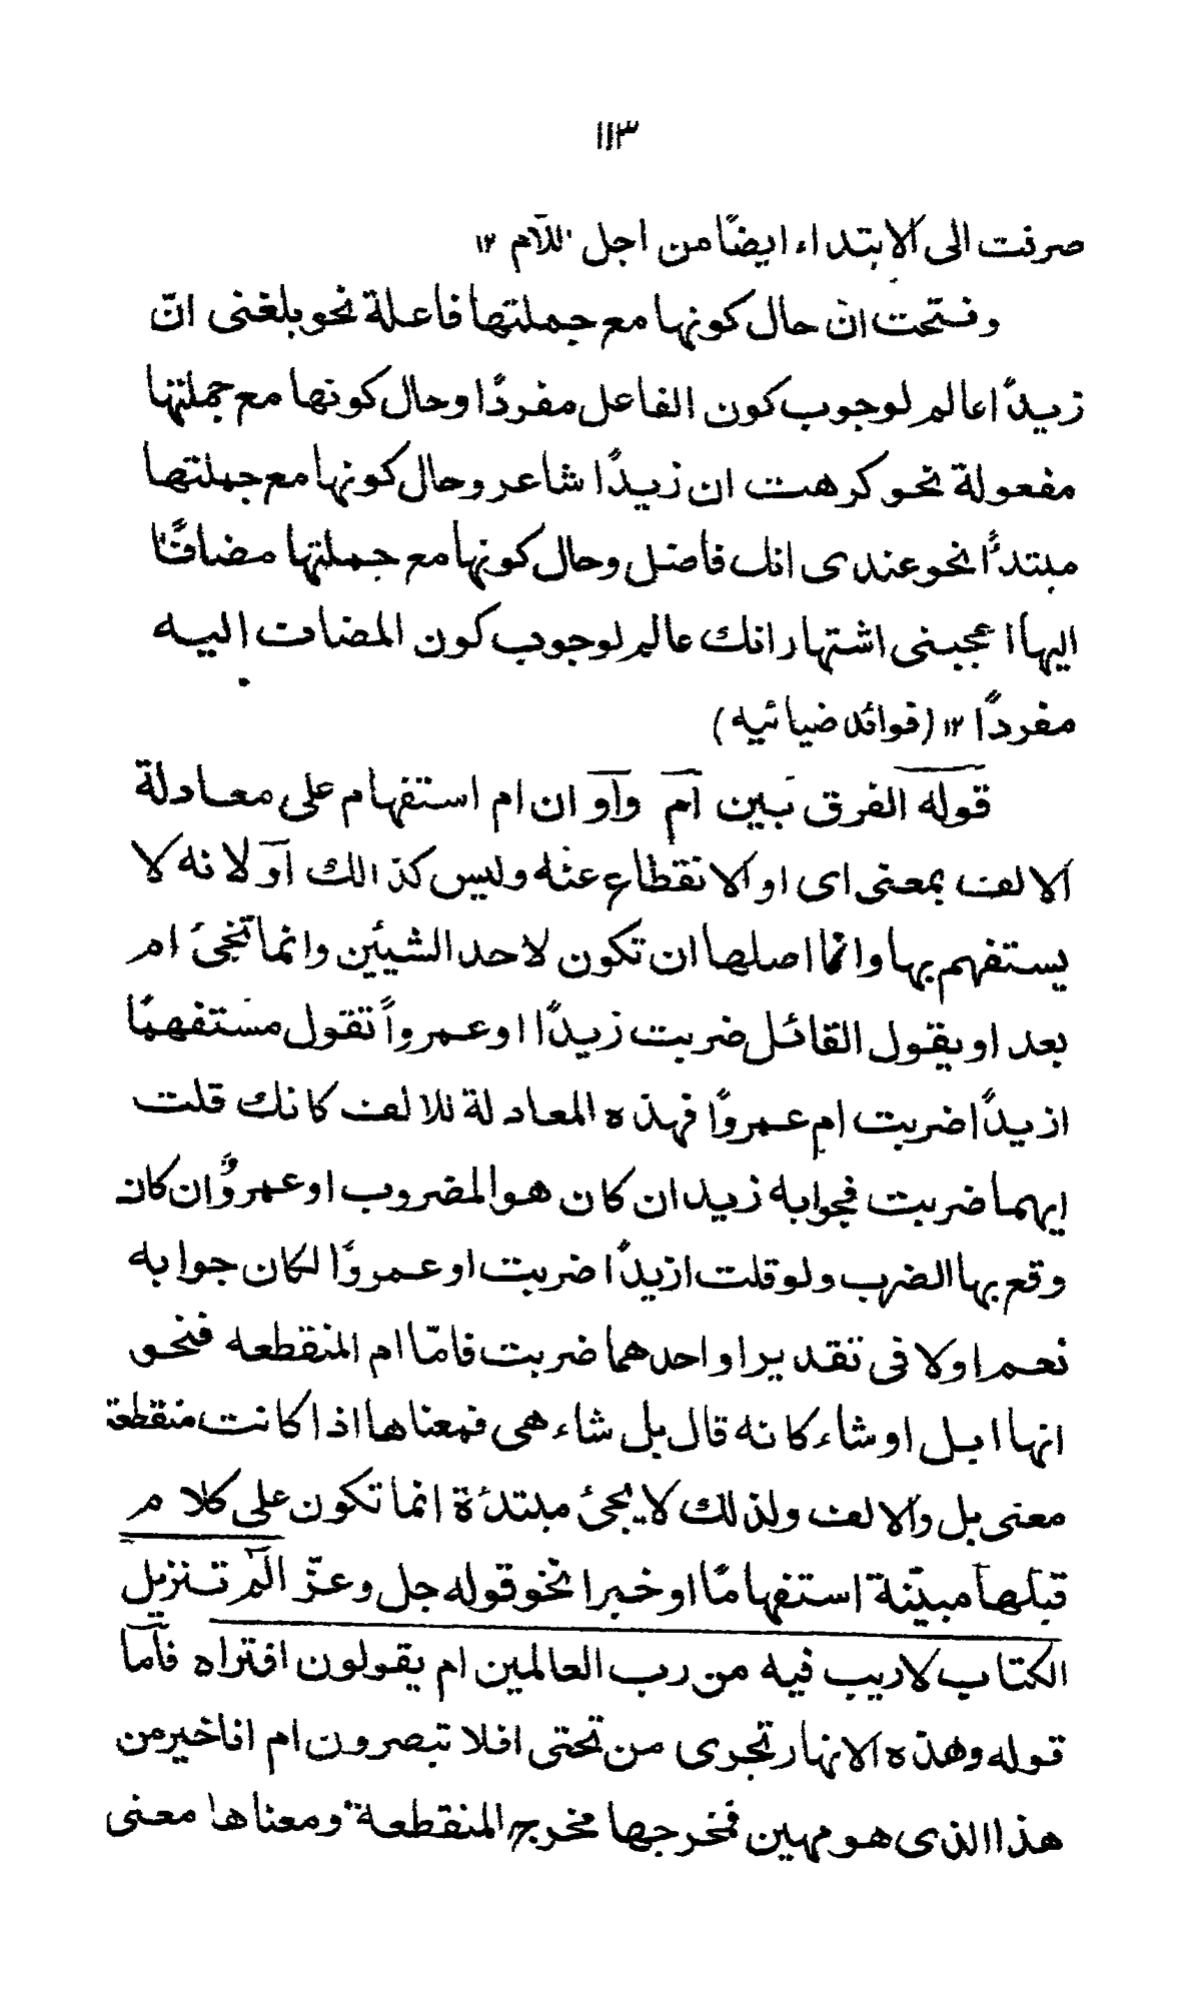 ١١٣
صرفت الى الابتداء ايضًا من اجل اللّام ١٢
وفتحت انّ حال كونها مع جملتها فاعلة نحو بلغنى انّ
زيدًا عالم لوجوب كون الفاعل مفردًا وحال كونها مع جملتها
مفعولة نحو كرهت ان زيدًا شاعر وحال كونها مع جملتها
مبتدأً نحو عندى انك فاضل وحال كونها مع جملتها مضافًا
اليها اعجبنى اشتهار انك عالم لوجوب كون المضاف اليه
مفردًا ١٢ (فوائد ضيائيه)
قوله الفرق بَين اَم واَو ان ام استفهام على معادلة
الالف بمعنى اى او الانقطاع عنه وليس كذالك اَو لانه لا
يستفهم بها وانما اصلها ان تكون لاحد الشيئين وانما تجئ ام
بعد او يقول القائل ضربت زيدًا او عمرواً تقول مستفهمًا
ازيدًا ضربت ام عمروًا فهذه المعادلة للالف كانك قلت
ايهما ضربت فجوابه زيد ان كان هو المضروب او عمروٌ ان كان
وقع بها الضرب ولو قلت ازيدًا ضربت او عمروًا لكان جوابه
نعم او لا فى تقدير او احدهما ضربت فامّا ام المنقطعه فنحو
انها ابل او شاء كانه قال بل شاء هى فمعناها اذا كانت منقطعة
معنى بل والالف ولذلك لا يجئ مبتدئة انما تكون على كلام
قبلها مبيّنة استفهامًا او خبرا نحو قوله جل وعزّ الٓمّ تنزيل
الكتاب لاريب فيه من رب العالمين ام يقولون افتراه فاما
قوله وهذه الانهار تجرى من تحتى افلا تبصرون ام انا خير من
هذا الذى هو مهين فمخرجها مخرج المنقطعة ومعناها معنى